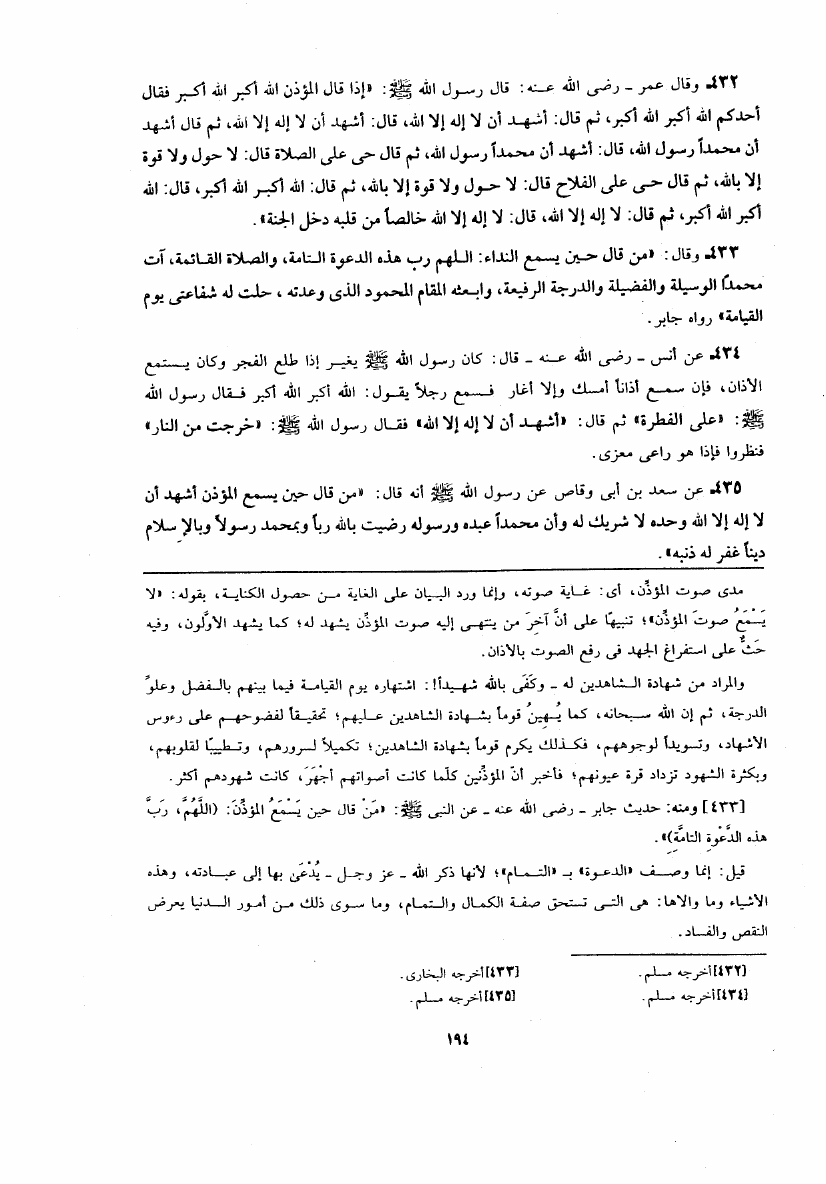 ٤٣٢ـ وقال عمر ـ رضى الله عنه: قال رسول الله ﷺ: «إذا قال المؤذن الله أكبر الله أكبر فقال
أحدكم الله أكبر الله أكبر، ثم قال: أشهد أن لا إله إلا الله، قال: أشهد أن لا إله إلا الله، ثم قال أشهد
أن محمداً رسول الله، قال: أشهد أن محمداً رسول الله، ثم قال حى على الصلاة قال: لا حول ولا قوة
إلا بالله، ثم قال حى على الفلاح قال: لا حول ولا قوة إلا بالله، ثم قال: الله أكبر الله أكبر، قال: الله
أكبر الله أكبر، ثم قال: لا إله إلا الله، قال: لا إله إلا الله خالصاً من قلبه دخل الجنة».
٤٣٣ـ وقال: «من قال حين يسمع النداء: اللهم رب هذه الدعوة التامة، والصلاة القائمة، آت
محمداً الوسيلة والفضيلة والدرجة الرفيعة، وابعثه المقام المحمود الذى وعدته ، حلت له شفاعتى يوم
القيامة» رواه جابر.
٤٣٤ـ عن أنس ـ رضى الله عنه ـ قال: كان رسول الله ﷺ يغير إذا طلع الفجر وكان يستمع
الأذان، فإن سمع أذاناً أمسك وإلا أغار فسمع رجلاً يقول: الله أكبر الله أكبر فقال رسول الله
ﷺ: «على الفطرة» ثم قال: «أشهد أن لا إله إلا الله» فقال رسول الله ﷺ: «خرجت من النار»
فنظروا فإذا هو راعى معزى.
٤٣٥ـ عن سعد بن أبى وقاص عن رسول الله ﷺ أنه قال: «من قال حين يسمع المؤذن أشهد أن
لا إله إلا الله وحده لا شريك له وأن محمداً عبده ورسوله رضيت بالله رباً وبمحمد رسولاً وبالإسلام
ديناً غفر له ذنبه».
مدى صوت المؤذِّن، أى: غاية صوته، وإنما ورد البيان على الغاية من حصول الكناية، بقوله: «لا
يَسْمَعُ صوتَ المؤذن»؛ تنبيهًا على أنَّ آخِرَ من ينتهى إليه صوت المؤذن يشهد له؛ كما يشهد الأوَّلون، وفيه
حَثٌّ على استفراغ الجهد فى رفع الصوت بالأذان.
والمراد من شهادة الشاهدين له ـ وكَفَى بالله شهيداً!: اشتهاره يوم القيامة فيما بينهم بالفضل وعلوِّ
الدرجة، ثم إن الله سبحانه، كما يُهِينُ قوماً بشهادة الشاهدين عليهم؛ تحقيقاً لفضوحهم على رءوس
الأشهاد، وتسويداً لوجوههم، فكذلك يكرم قوماً بشهادة الشاهدين؛ تكميلاً لسرورهم، وتطييبًا لقلوبهم،
وبكثرة الشهود تزداد قرة عيونهم؛ فأخبر أنّ المؤذّنين كلّما كانت أصواتهم أَجْهَرَ، كانت شهودهم أكثر.
[٤٣٣] ومنه: حديث جابر ـ رضى الله عنه ـ عن النبى ﷺ: «مَنْ قال حين يَسْمَعُ المؤذِّنَ: (اللَّهُمَّ، رَبَّ
هذه الدَّعْوةِ التامَّةِ)».
قيل: إنما وصف «الدعوة» بـ «التمام»؛ لأنها ذكر الله ـ عز وجل ـ يُدْعَىَ بها إلى عبادته، وهذه
الأشياء وما والاها: هى التى تستحق صفة الكمال والتمام، وما سوى ذلك من أمور الدنيا يعرض
النقص والفساد.
[٤٣٢] أخرجه مسلم.
[٤٣٣] أخرجه البخارى.
[٤٣٤] أخرجه مسلم.
[٤٣٥] أخرجه مسلم.
١٩٤